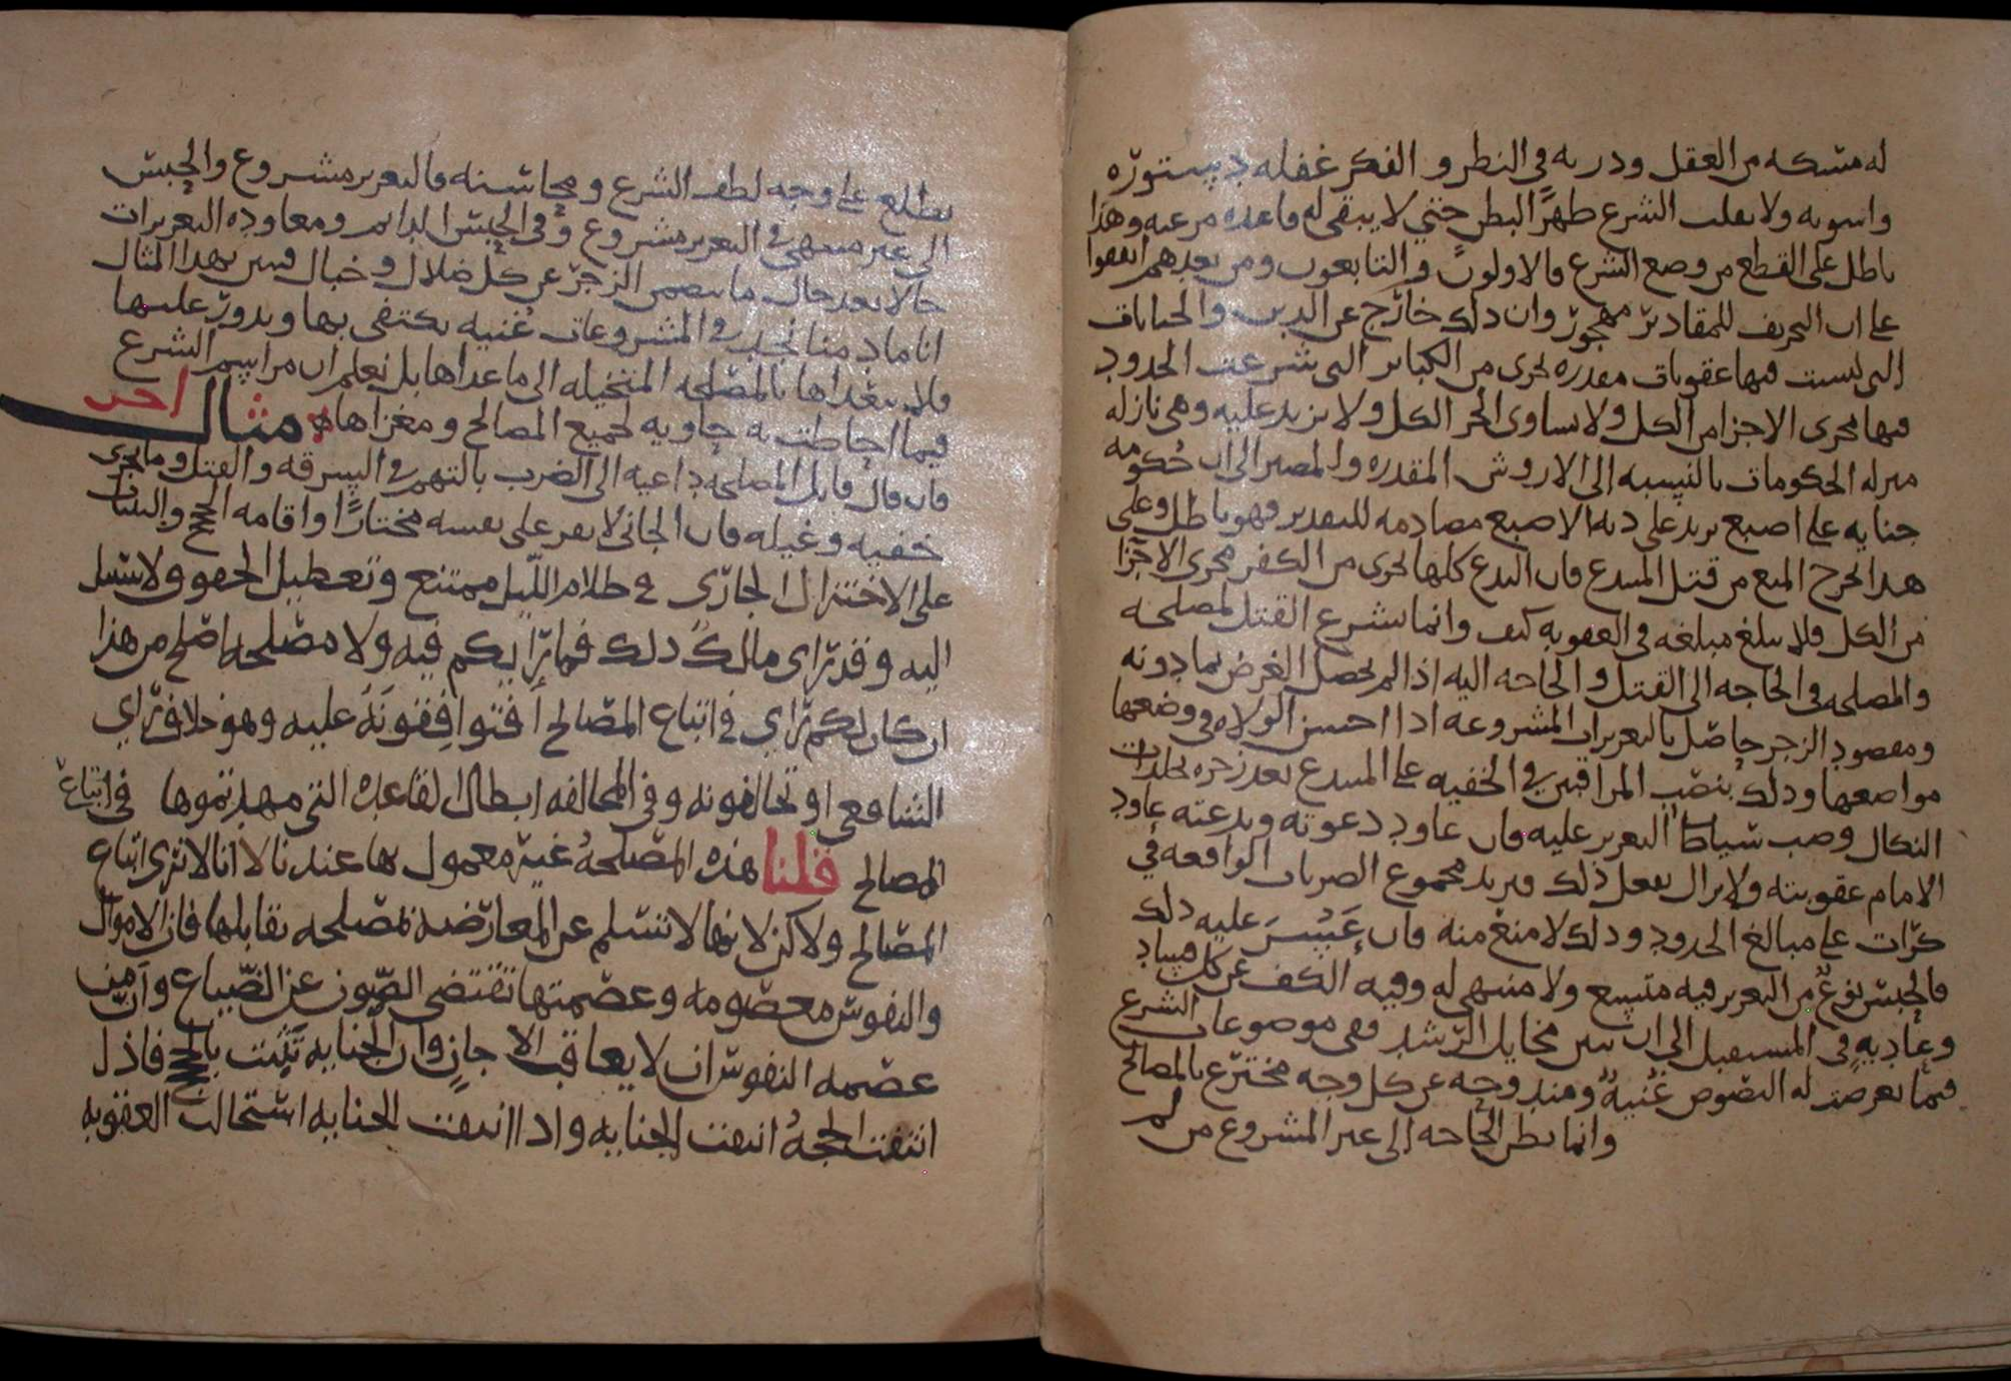 له مسكه من العقل ودربه في النظر والفكر غفله دستوره
واسوبه ولا نقلب الشرع ظهرًا لبطن حتى لا يبقى له قاعده مرعيه وهذا
باطل على القطع من وضع الشرع فالاولون والتابعون ومن بعدهم اتفقوا
على ان التحريف للمقادير مهجور وان ذلك خارج عن الدين والجنايات
التي ليست فيها عقوبات مقدره تجرى من الكباير التي شرعت الحدود
فيها مجرى الاجزا من الكل ولا يساوى الجز الكل ولا يزيد عليه وهي نازله
منزله الحكومات بالنسبه الى الاروش المقدره والمصير الى ان حكومه
جنايه على اصبع يزيد على ديه الاصبع مصادمه للتقدير فهو باطل وعلى
هذا الخرج المنع من قتل المبتدع فان البدع كلها تجرى من الكفر مجرى الاجزا
من الكل فلا يبلغ مبلغه في العقوبه كيف وانما يشرع القتل لمصلحه
والمصلحه في الحاجه الى القتل ولا حاجه اليه اذا لم يحصل الغرض بما دونه
ومقصود الزجر حاصل بالتعزيرات المشروعه اذا احسن الولاه في وضعها
مواضعها وذلك بنصب المراقبين في الخفيه على المبتدع بعد زجره بجلدات
النكال وصب سياط التعزير عليه فان عاود دعوته وبدعته عاود
الامام عقوبته ولا يزال يفعل ذلك ويزيد مجموع الضربات الواقعه في
كرّات على مبالغ الحدود وذلك لا منع منه فان عَسُرَ عليه ذلك
فالحبس نوع من التعزير فيه متسع ولا منتهى له وفيه الكف عن كل فساد
وعاديه في المستقبل الى ان تبين مخايل الرشد ففي موضوعات الشرع
فيما تعرضت له النصوص غنيه ومندوحه عن كل وجه مخترع بالمصالح
وانما يظن الحاجه الى غير المشروع من لم
يطلع على وجه لطف الشرع ومحاسنه فالتعزير مشروع والحبس
الى غير منتهى في التعزير مشروع وفي الحبس الدايم ومعاوده التعزيرات
حالا بعد حال ما يتضمن الزجر عن كل ضلال وخبال فتبين بهذا المثال
انا مادمنا نجد في المشروعات غنيه نكتفى بها وندور عليها
فلا نتعداها بالمصلحه المتخيله الى ما عداها بل نعلم ان مراسم الشرع
فيما احاطت به حاويه لجميع المصالح ومغزاها مثال اخر
فان قال قايل المصلحه داعيه الى الضرب بالتهم في السرقه والقتل وما يجرى
خفيه وغيله فان الجاني لا يقر على نفسه مختارًا واقامه الحجج والبينات
على الاختزال الجارى في ظلام الليل ممتنع وتعطيل الحقوق لا سبيل
اليه وقد رآى مالك ذلك فما رايكم فيه ولا مصلحه اصلح من هذا
ان كان لكم راي في اتباع المصالح افتوافقونه عليه وهو خلاف راي
الشافعي او تخالفونه وفي المخالفه ابطال القاعده التي مهدتموها في اتباع
المصالح قلنا هذه المصلحه غير معمول بها عندنا لا انا لا نرى اتباع
المصالح ولاكن لانها لا تسلم عن المعارضه لمصلحه تقابلها فان الاموال
والنفوس معصومه وعصمتها تقتضى الصون عن الضياع وان من
عصمه النفوس ان لا يعاقب الا جانٍ وان الجنايه تثبت بالحجج فاذل
انتفت الحجه انتفت الجنايه واذا انتفت الجنايه استحالت العقوبه